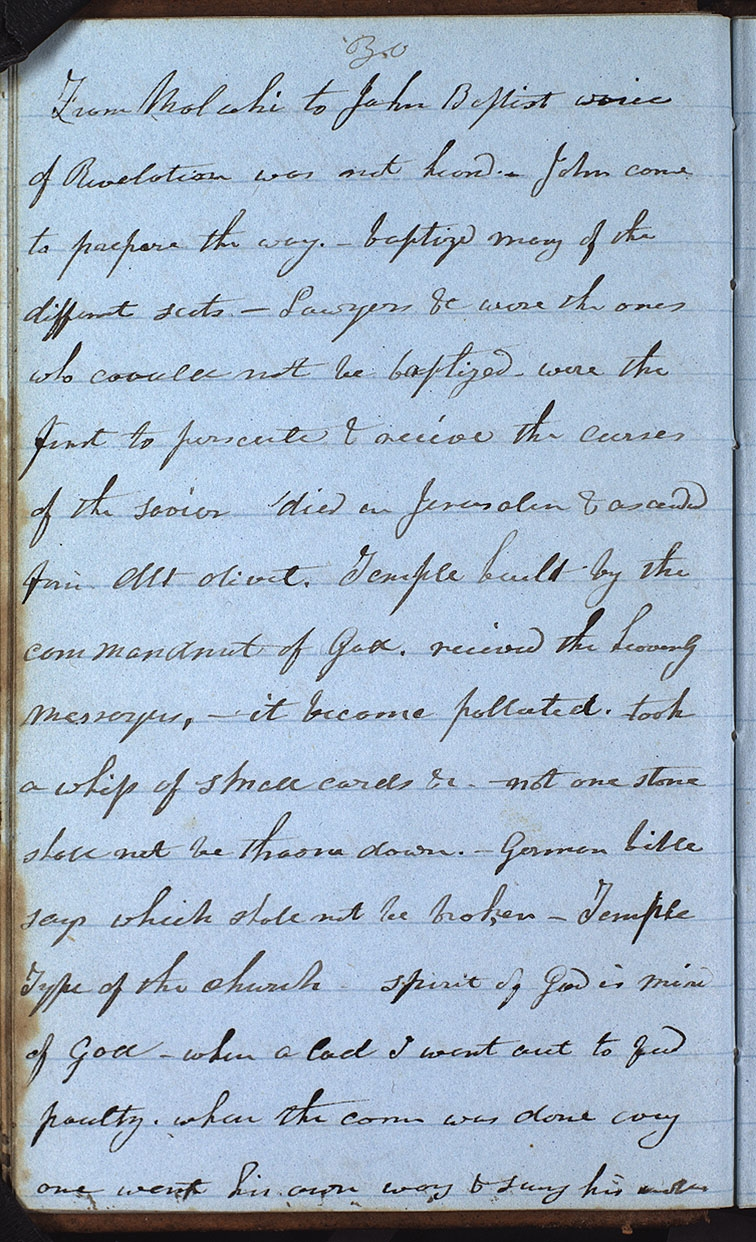 30
From Malachi to John Baptist voice
of Revelation was not heard. - John come
to prepare the way. - baptized many of the
different sects. - Lawyers &c were the ones
who could not be baptized - were the
first to persecute & recieve the curses
of the savior died in Jerusalem & ascended
from Mt olivet. Temple built by the
commandmnt of God. recieved the heavenly
messengers, - it became polluted. took
a whip of small cords &c. - not one stone
shall not be thrown down. - German bible
says which shall not be broken - Temple
Type of the church - spirit of God is mind
of God - when a lad I went out to feed
poultry. when the corn was done every
one went his own way & sung his